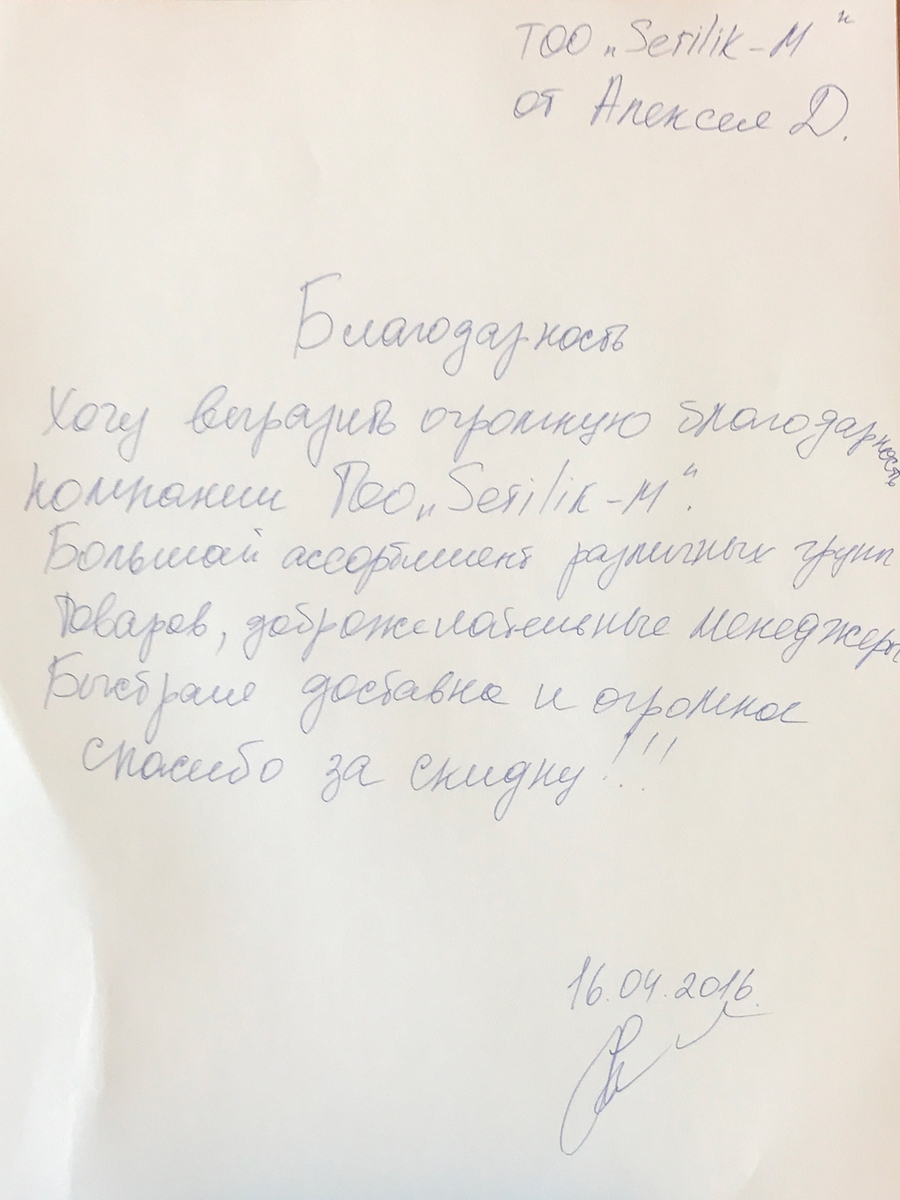 ТОО „Serilik-М"
от Алексея Д.
Благодарность
Хочу выразить огромную благодарность
компании Тоо „Serilik-М".
Большой ассортимент различных групп
товаров, доброжелательные менеджеры
Быстрая доставка и огромное
спасибо за скидку!!!
16.04.2016.